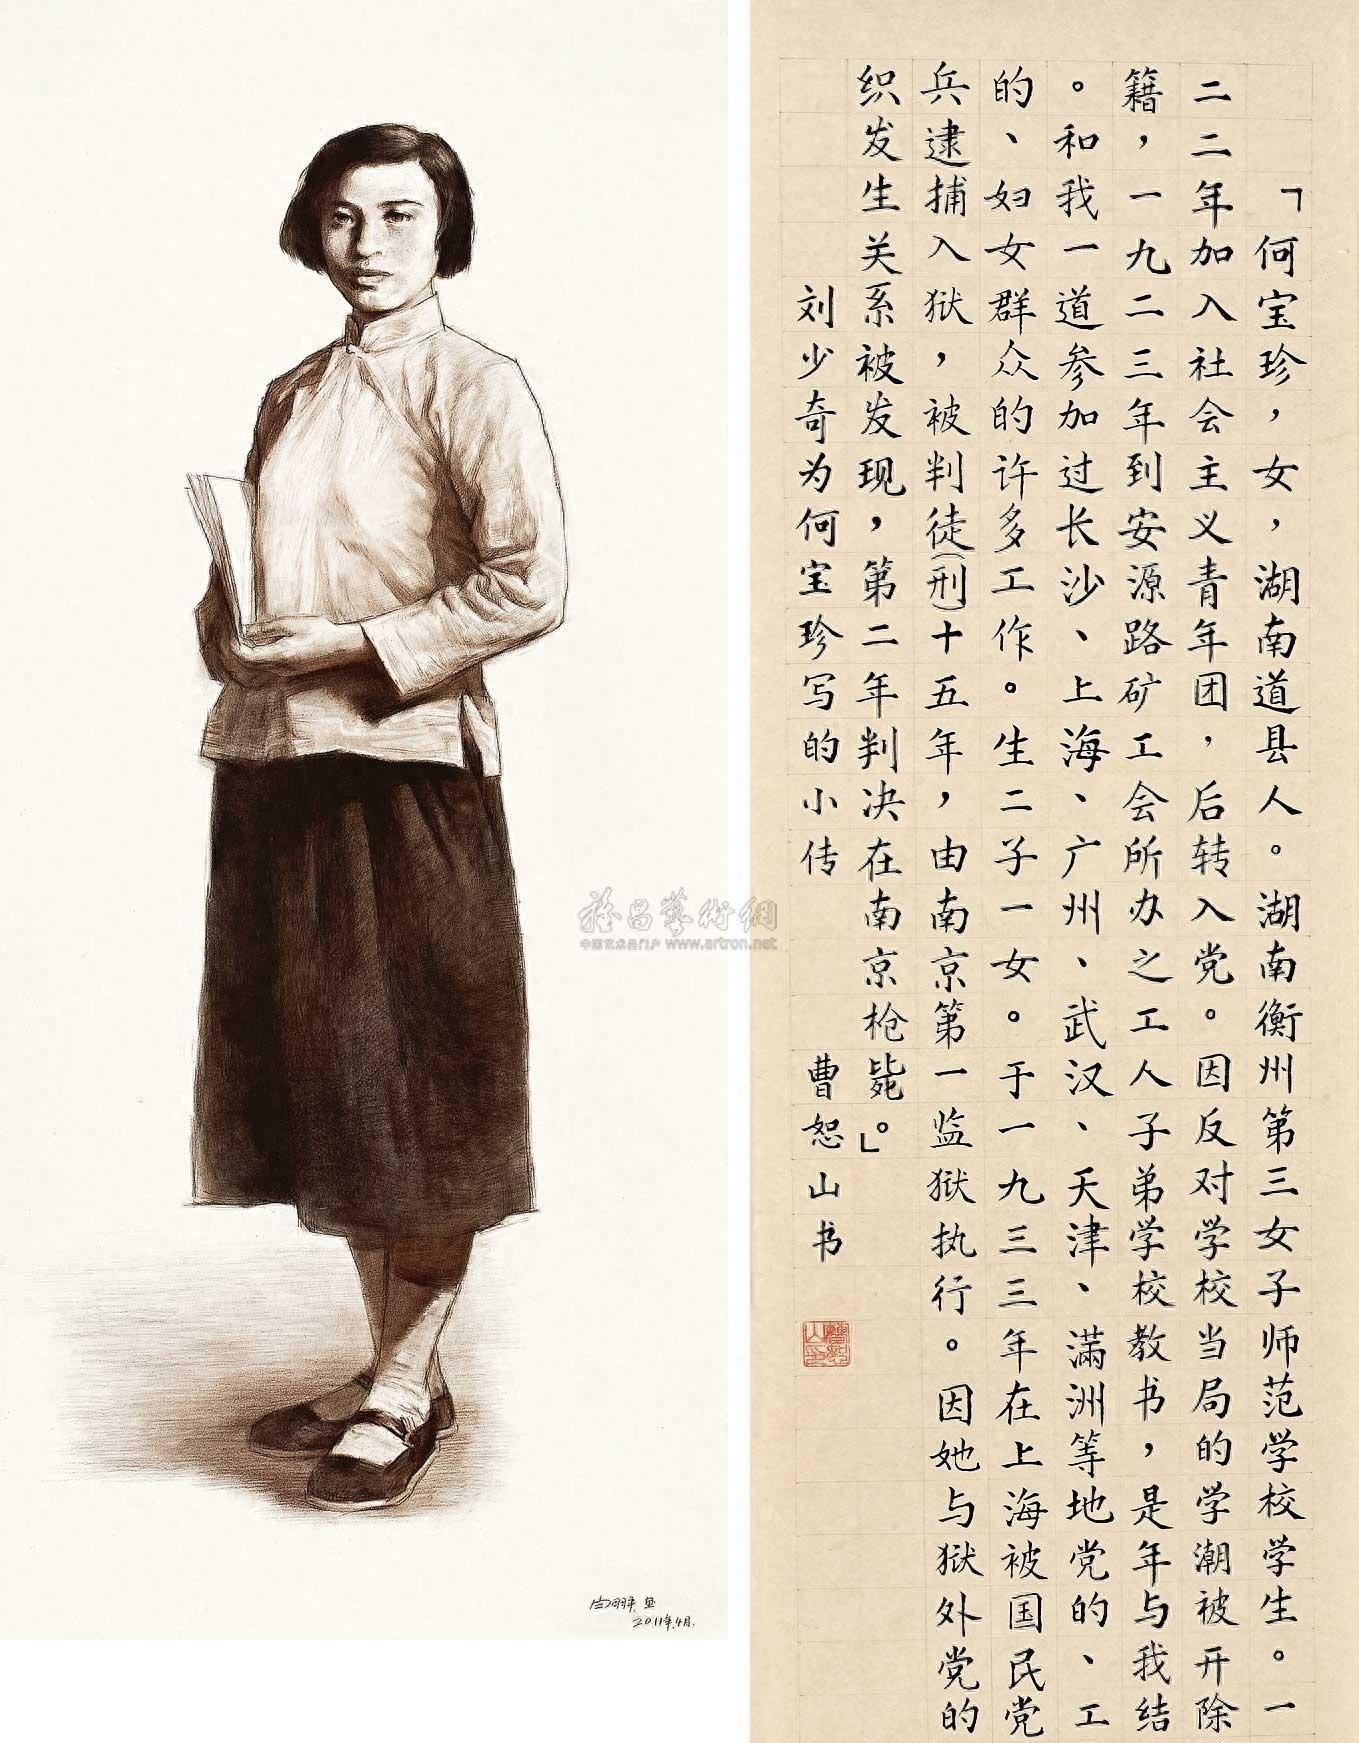 「何宝珍，女，湖南道县人。湖南衡州第三女子师范学校学生。一
二二年加入社会主义青年团，后转入党。因反对学校当局的学潮被开除
籍，一九二三年到安源路矿工会所办之工人子弟学校教书，是年与我结
。和我一道参加过长沙、上海、广州、武汉、天津、满洲等地党的、工
的、妇女群众的许多工作。生二子一女。于一九三三年在上海被国民党
兵逮捕入狱，被判徒(刑)十五年，由南京第一监狱执行。因她与狱外党的
织发生关系被发现，第二年判决在南京枪毙。」
刘少奇为何宝珍写的小传 曹恕山书
雅昌藝術網
中国艺术品门户 www.artron.net
2011年4月.